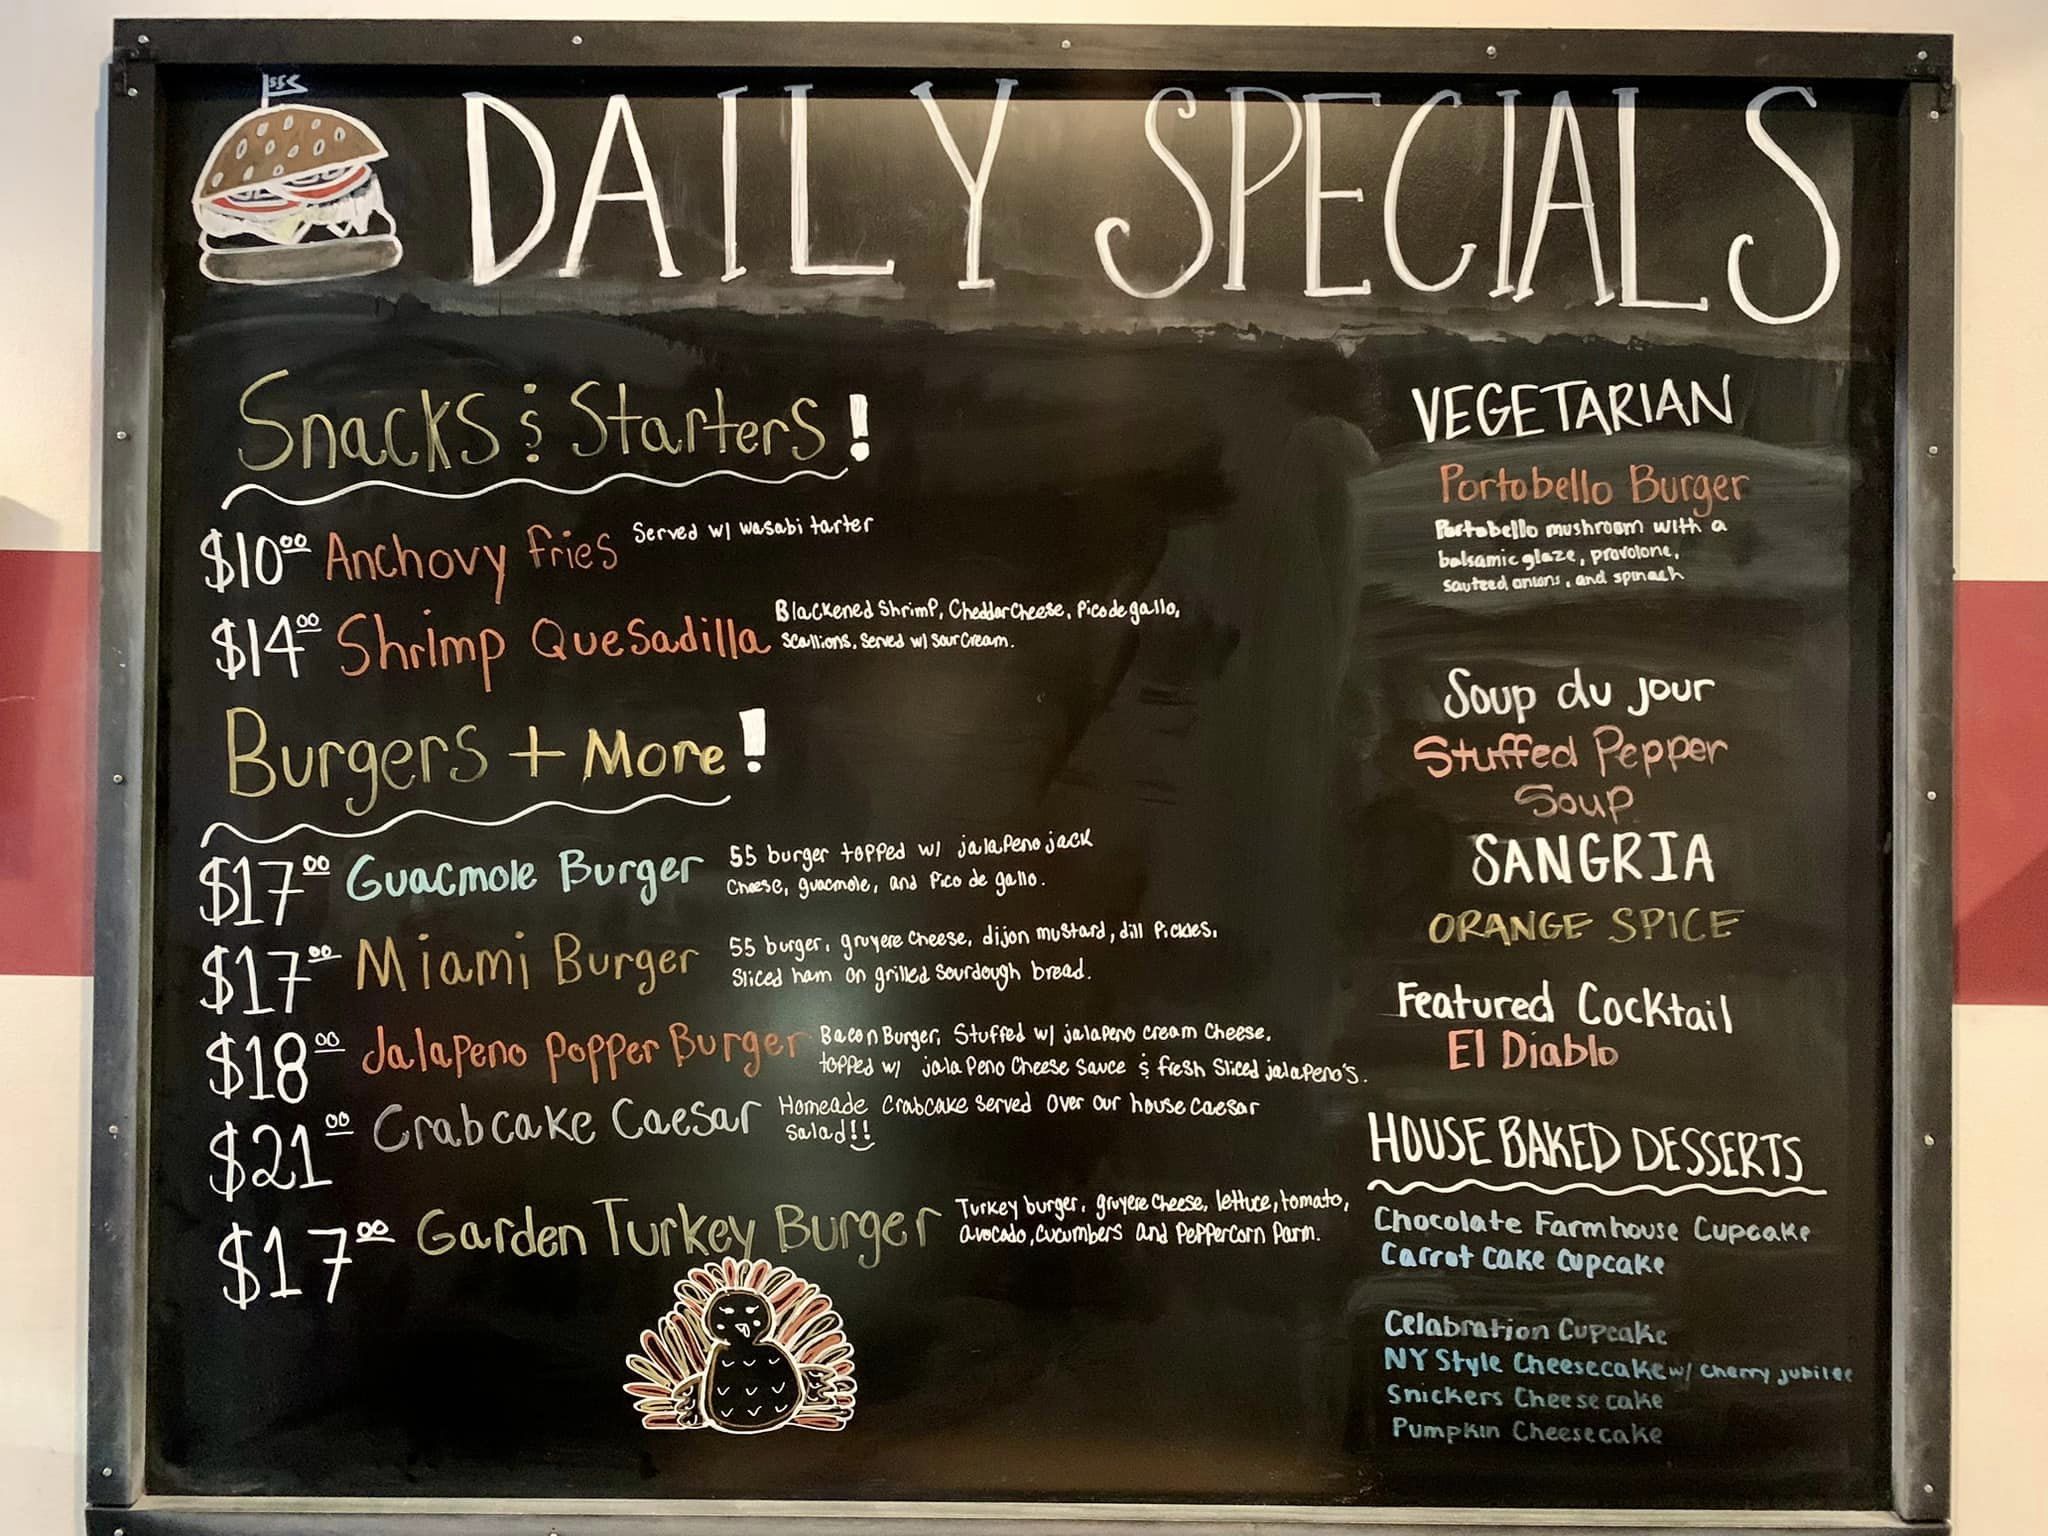 SFS
DAILY SPECIALS
Snacks & Starters!
$10.00 Anchovy fries Served w/ wasabi tarter
$14.00 Shrimp Quesadilla Blackened Shrimp, Cheddar Cheese, Pico de gallo,
Scallions, Served w/ Sour Cream.
Burgers + More!
$17.00 Guacmole Burger 55 burger topped w/ jalapeno jack
Cheese, guacmole, and Pico de gallo.
$17.00 Miami Burger 55 burger, gruyere Cheese, dijon mustard, dill Pickles,
Sliced ham on grilled Sourdough bread.
$18.00 Jalapeno popper Burger Bacon Burger, Stuffed w/ jalapeno cream Cheese,
topped w/ jalapeno Cheese Sauce & fresh Sliced jalapeno's.
$21.00 Crabcake Caesar Homeade Crabcake Served over our house Caesar
Salad!!
$17.00 Garden Turkey Burger Turkey burger, gruyere Cheese, lettuce, tomato,
avocado, cucumbers and Peppercorn Parm.
VEGETARIAN
Portobello Burger
Portobello mushroom with a
balsamic glaze, provolone,
sauteed onions, and spinach
Soup du jour
Stuffed Pepper
Soup
SANGRIA
ORANGE SPICE
Featured Cocktail
El Diablo
HOUSE BAKED DESSERTS
Chocolate Farmhouse Cupcake
Carrot Cake Cupcake
Celabration Cupcake
NY Style Cheesecake w/ Cherry jubilee
Snickers Cheesecake
Pumpkin Cheesecake